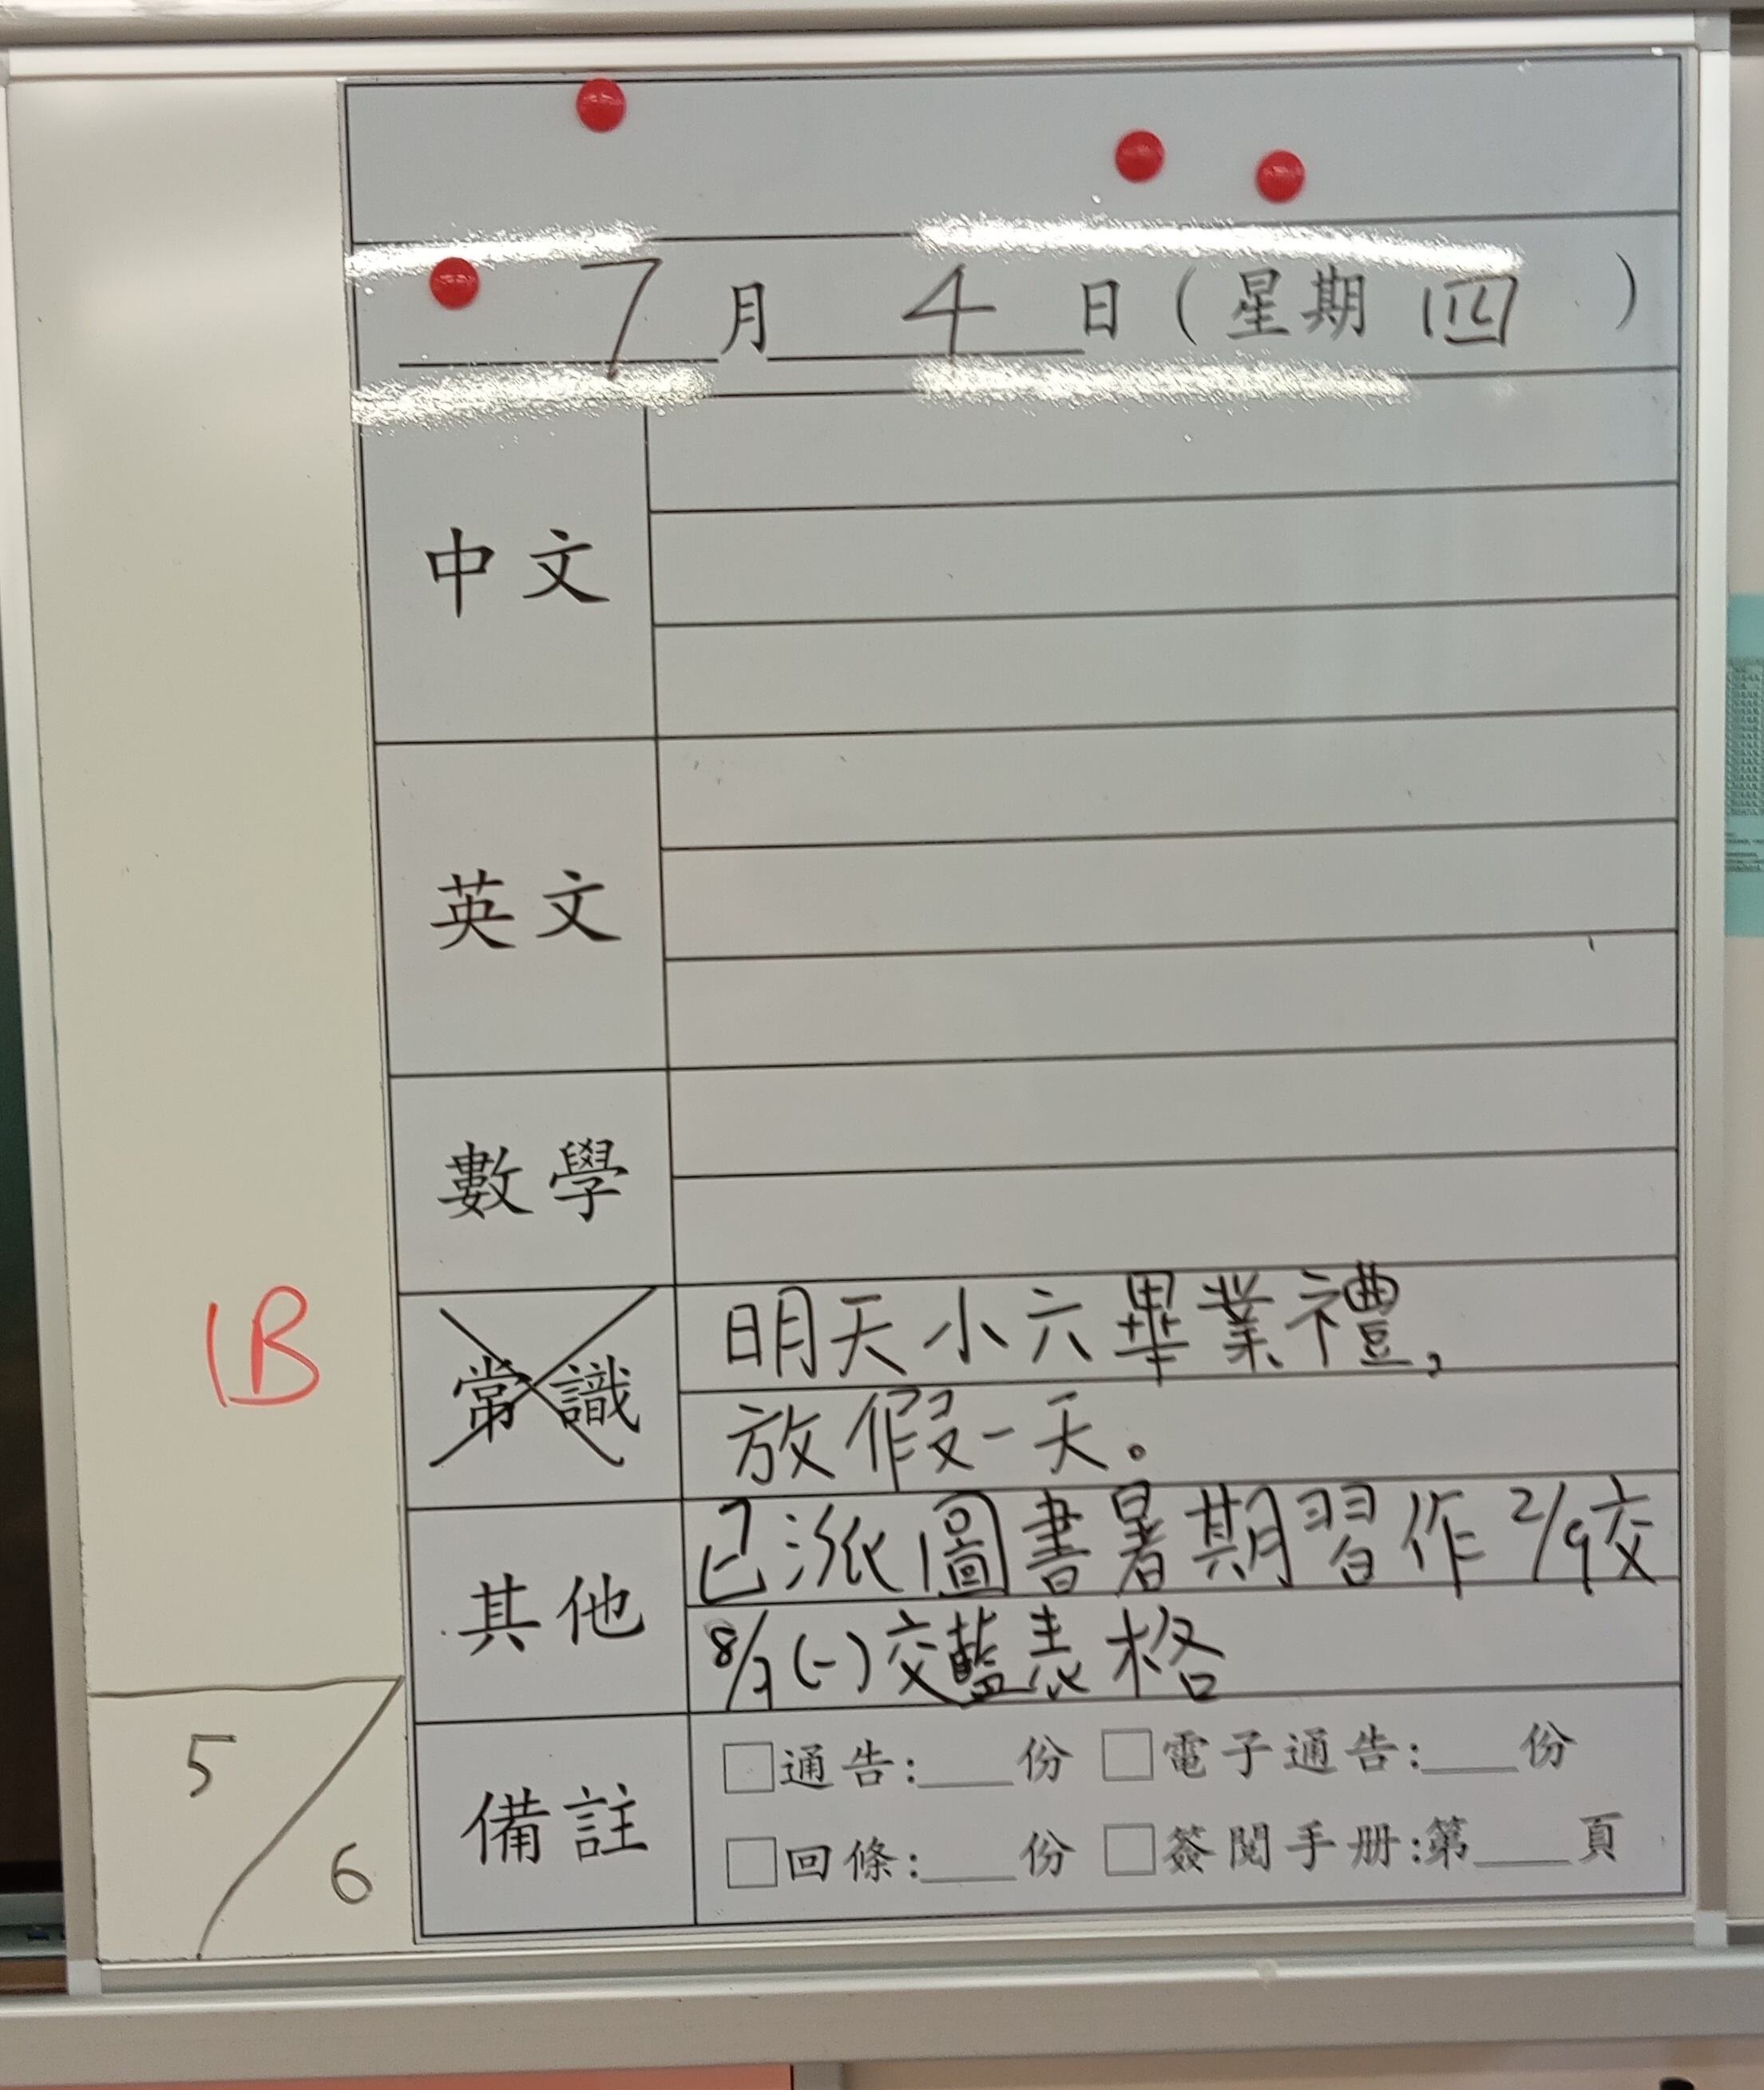 7月4日(星期四)
中文
英文
數學
常識
明天小六畢業禮,
放假一天。
其他
已派圖書暑期習作 2/9交
8/7(一)交藍表格
備註
□通告:___份 □電子通告:___份
□回條:___份 □簽閱手册:第___頁
1B
5/6